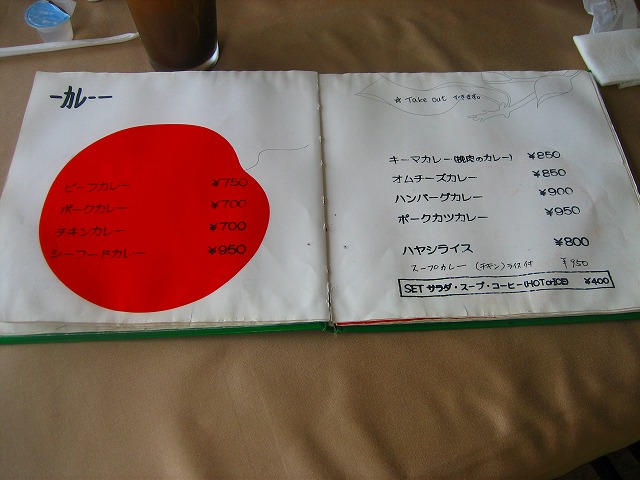 ーカレーー
ビーフカレー ¥750
ポークカレー ¥700
チキンカレー ¥700
シーフードカレー ¥950
☆ Take out できます。
キーマカレー(挽肉のカレー) ¥850
オムチーズカレー ¥850
ハンバーグカレー ¥900
ポークカツカレー ¥950
ハヤシライス ¥800
スープカレー (チキン)ライス付 ¥950
SET サラダ・スープ・コーヒー(HOT or ICE) ¥400